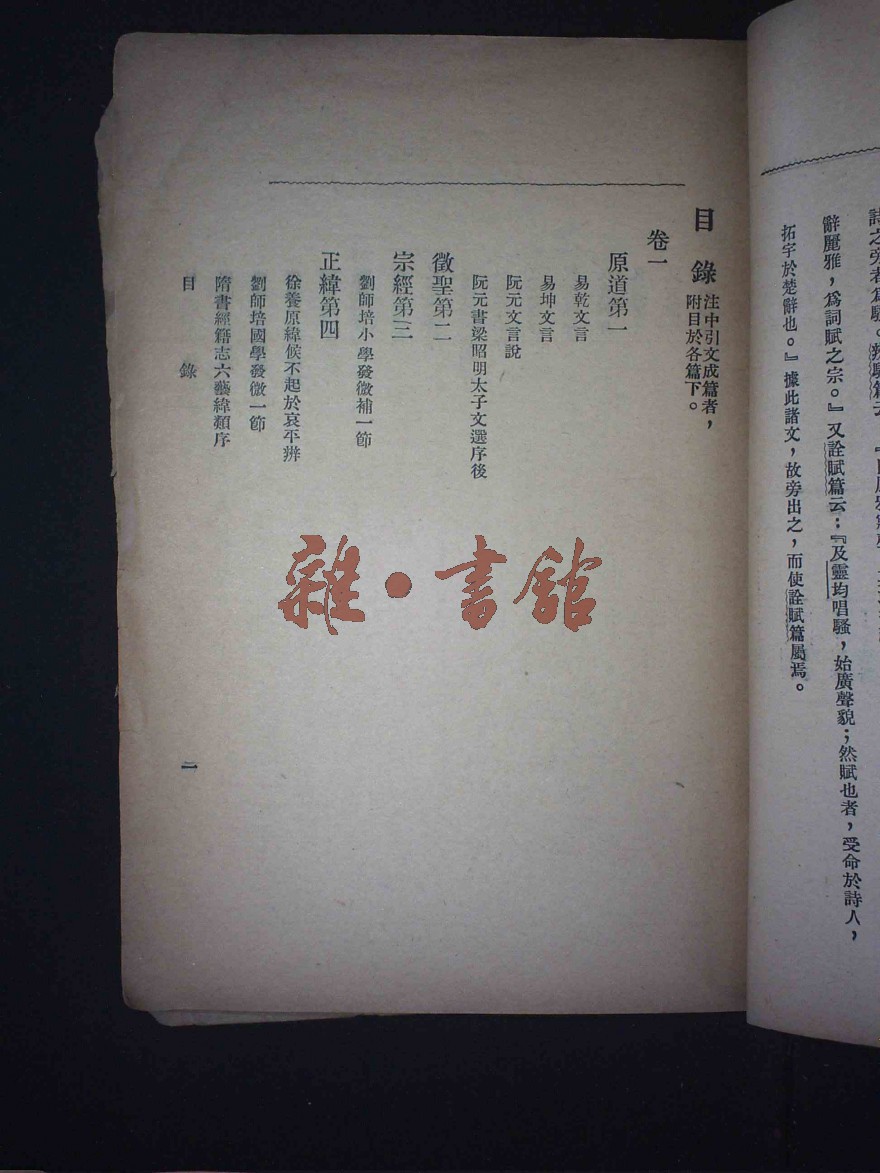 辭麗雅，爲詞賦之宗。』又詮賦篇云：『及靈均唱騷，始廣聲貌；然賦也者，受命於詩人，
拓宇於楚辭也。』據此諸文，故旁出之，而使詮賦篇屬焉。
目錄
注中引文成篇者，
附目於各篇下。
卷一
原道第一
易乾文言
易坤文言
阮元文言說
阮元書梁昭明太子文選序後
徵聖第二
宗經第三
劉師培小學發微補一節
正緯第四
徐養原緯候不起於哀平辨
劉師培國學發微一節
隋書經籍志六藝緯類序
目錄
一
雜·書館